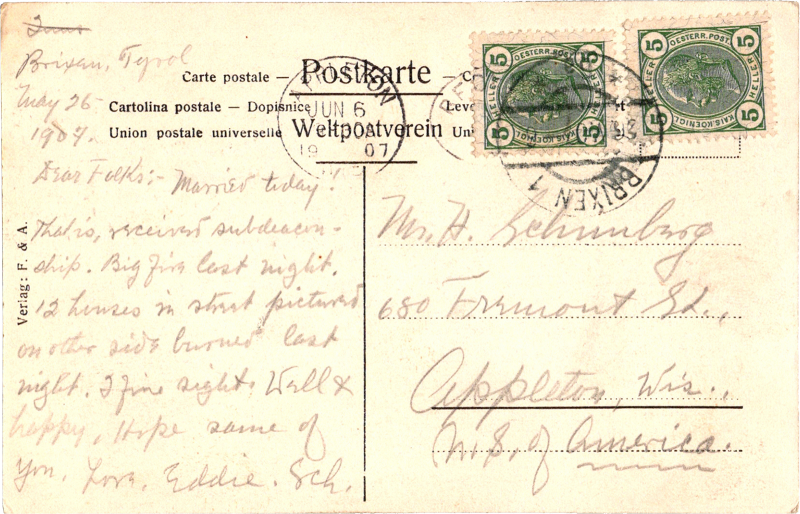 Brixen, Tyrol
May 26-
1907.
Dear Folks:- Married today.
That is, received subdeacon-
ship. Big fire last night.
12 houses in street pictured
on other side burned last
night. I fine sight. Well &
happy, Hope same of
You. Love, Eddie. Sch.
Carte postale – Postkarte –
Cartolina postale – Dopisnice
Union postale universelle Weltpostverein
APPLETON
JUN 6
19 07
5 OESTERR. POST. 5
HELLER HELLER
5 KAIS. KOENIGL. 5
5 OESTERR. POST. 5
HELLER HELLER
5 KAIS. KOENIGL. 5
BRIXEN 1
Mr. H. Schmberg
680 Fremont St.,
Appleton, Wis.,
U.S. of America.
Verlag: F. & A.